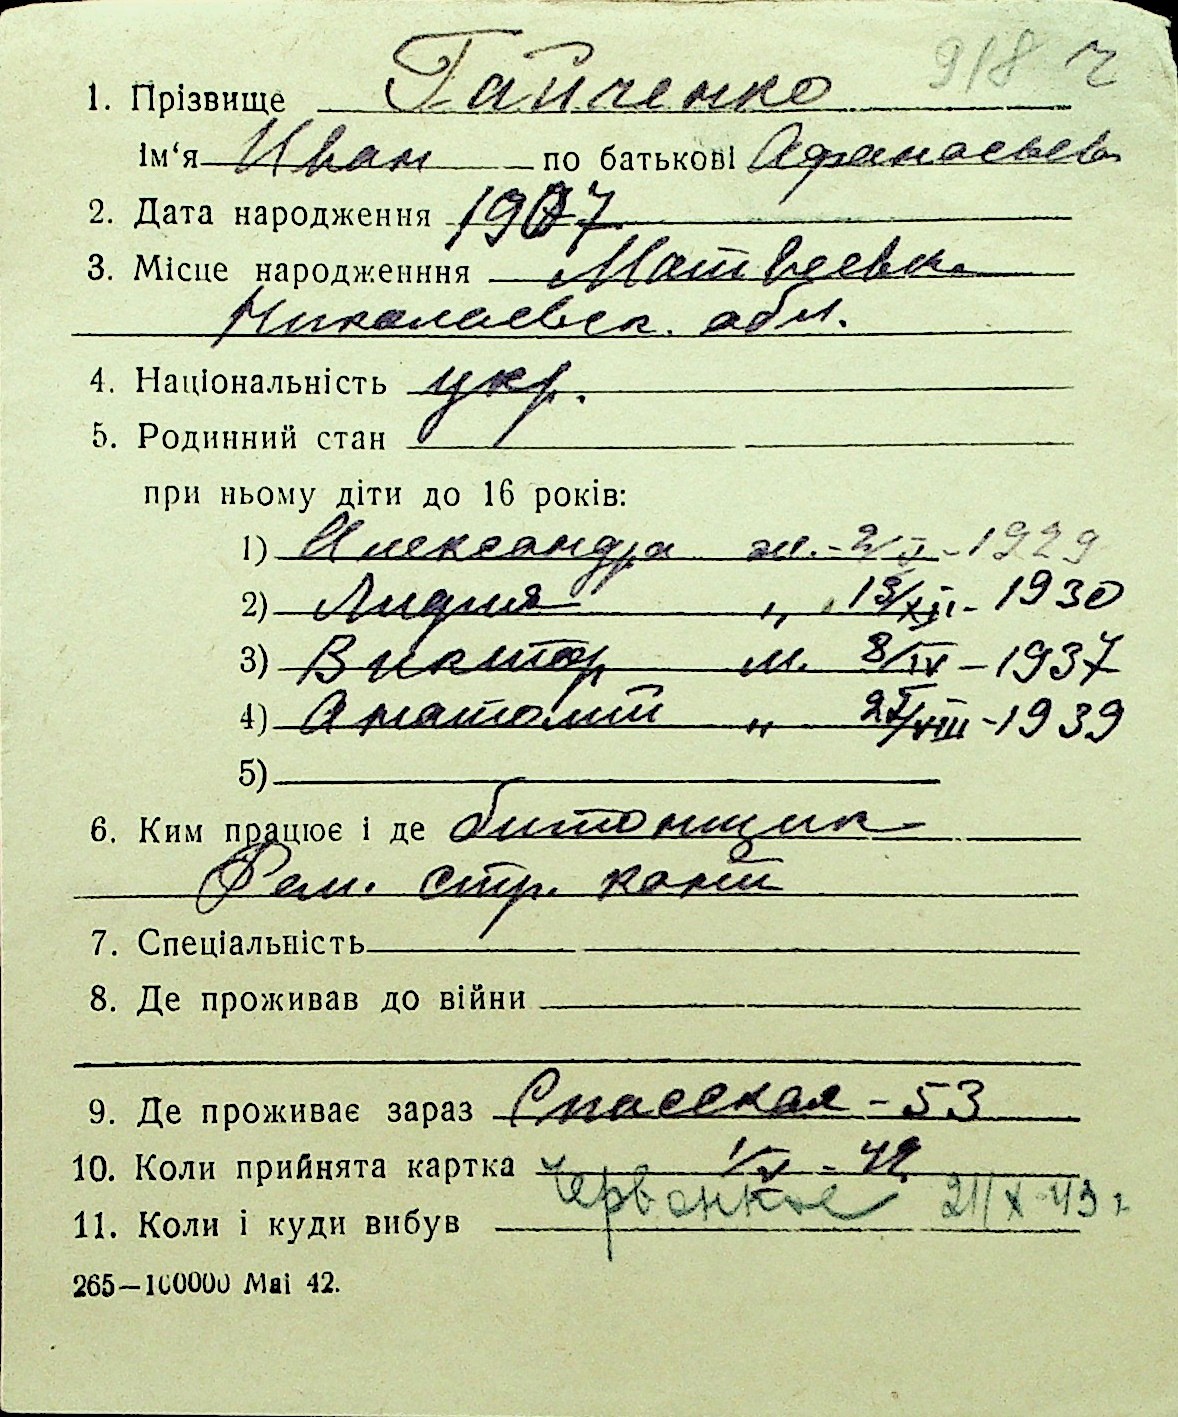 918 ч
1. Прізвище Гайченко
ім‘я Иван по батькові Афанасьев
2. Дата народження 1907
3. Місце народженння Матвеевк.
Николаевск. обл.
4. Національність укр.
5. Родинний стан
при ньому діти до 16 років:
1) Александра ж. - 1929
2) Лидия „ 18/XII - 1930
3) Виктор м. 8/IV - 1937
4) Анатолий „ VIII - 1939
5)
6. Ким працює і де битонщик
Рем. стр. конт
7. Спеціальність
8. Де проживав до війни
9. Де проживає зараз Спасская - 53
10. Коли прийнята картка - 42
11. Коли і куди вибув 2/IX 43 г.
265—100000 Маі 42.